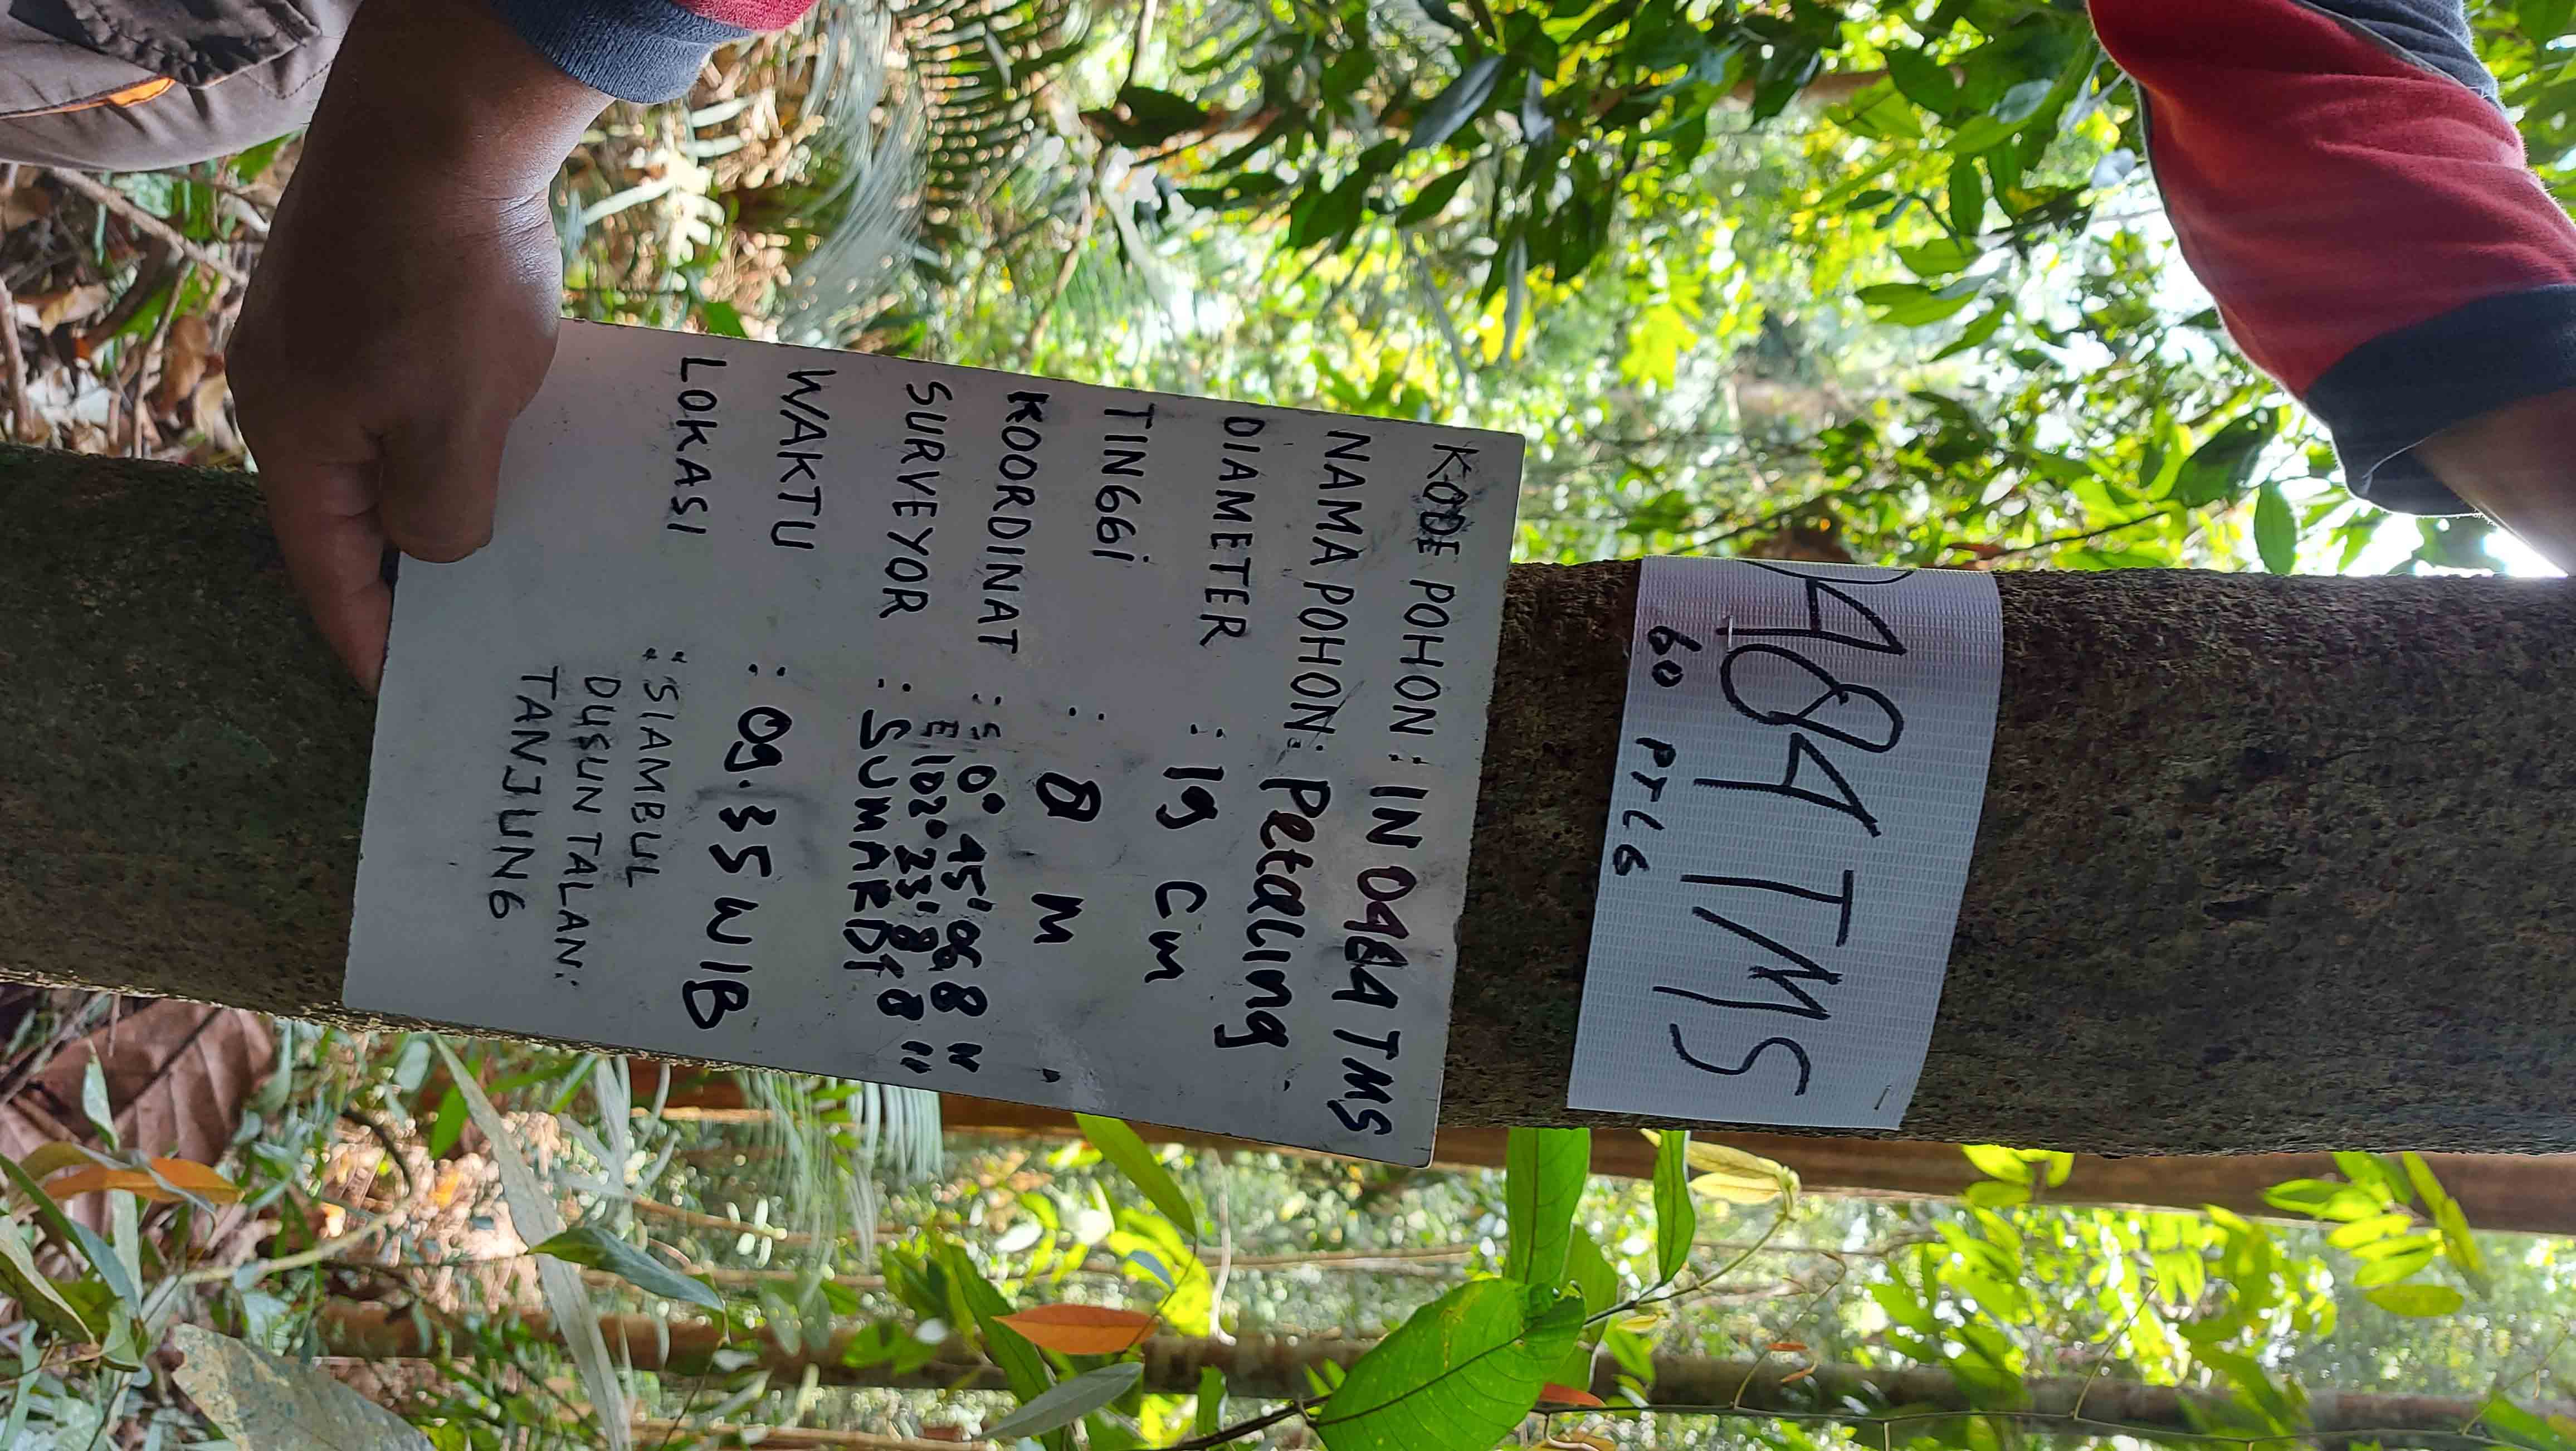 0484 TMS
60 PTLG
KODE POHON : IN 0484 TMS
NAMA POHON : Petaling
DIAMETER : 19 Cm
TINGGI : 8 M
KOORDINAT : S 0° 45' 06,8 "
E 102° 23' 8,8 "
SURVEYOR : SUMARDI
WAKTU : 09.35 WIB
LOKASI : SIAMBUL
DUSUN TALAN:
TANJUNG